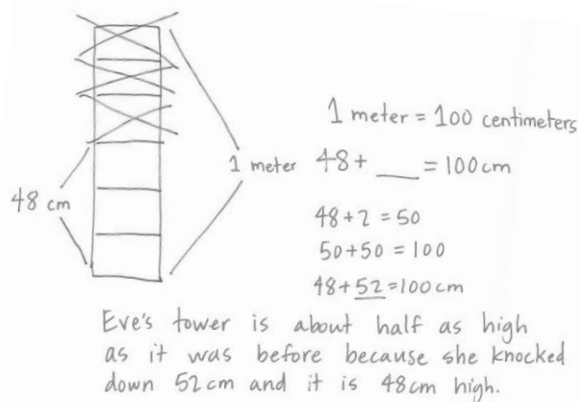 1 meter = 100 centimeters
1 meter
48 + ___ = 100 cm
48 cm
48 + 2 = 50
50 + 50 = 100
48 + 52 = 100 cm
Eve's tower is about half as high
as it was before because she knocked
down 52 cm and it is 48 cm high.